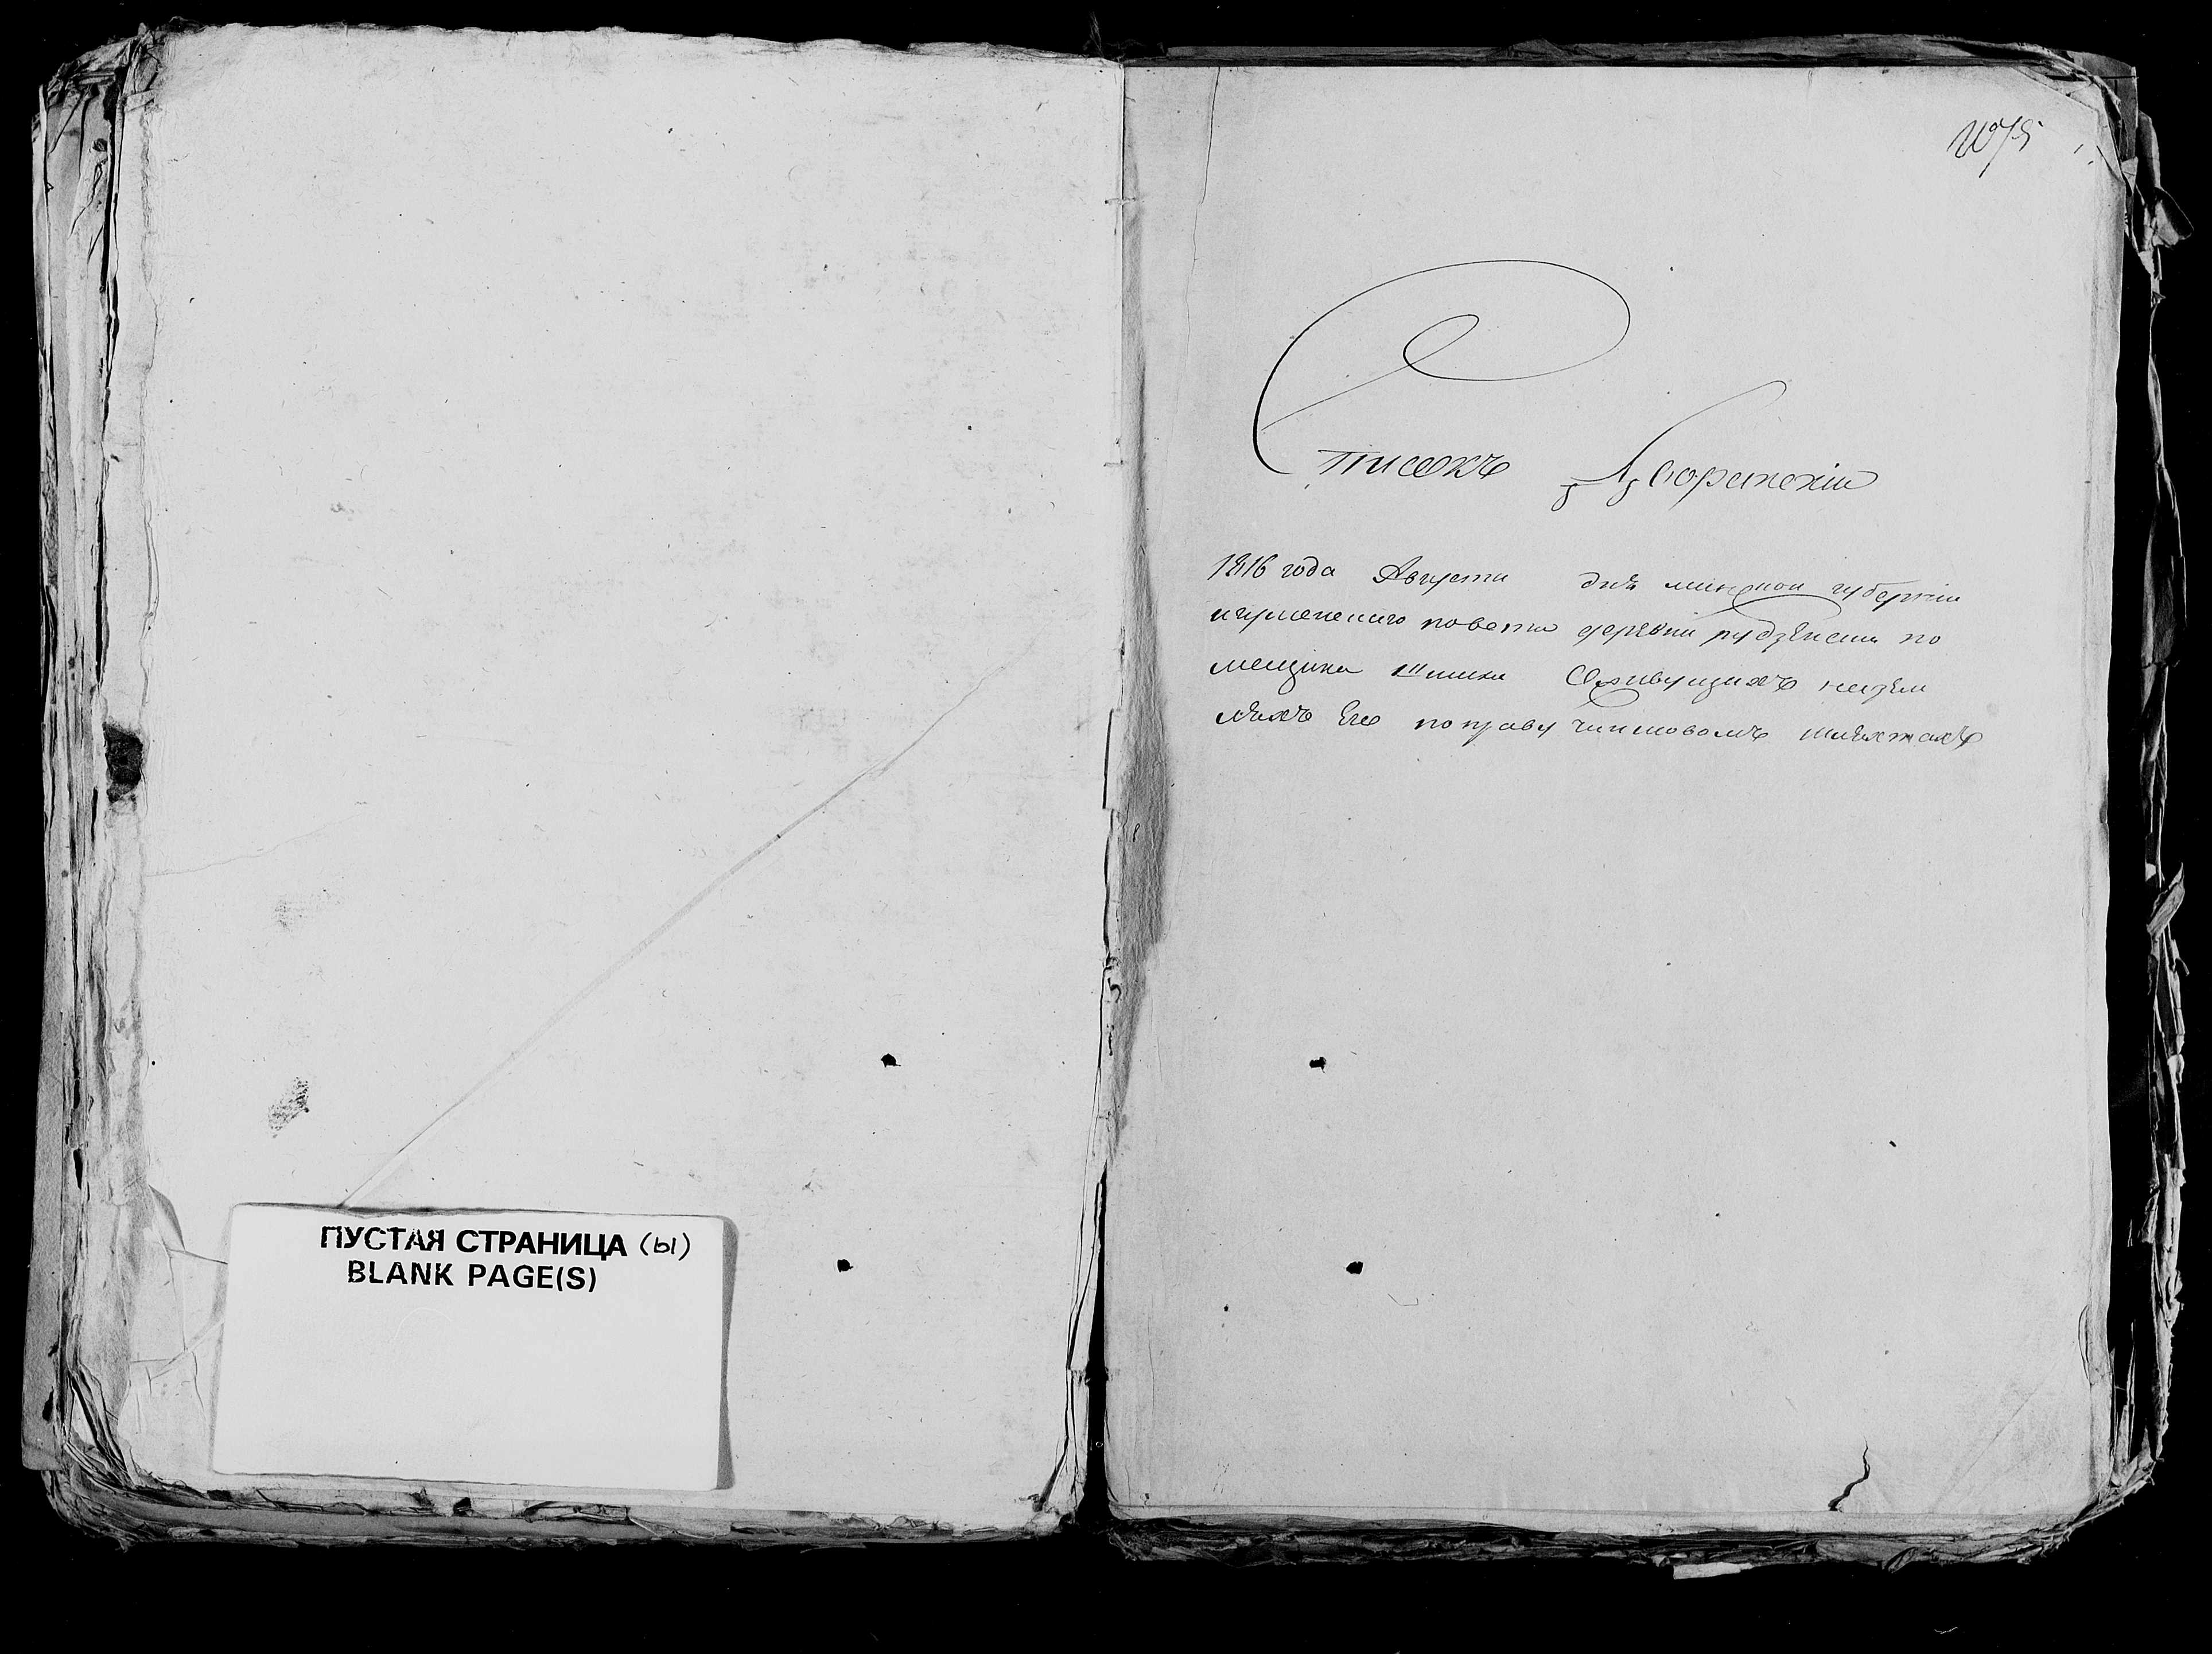 ПУСТАЯ СТРАНИЦА (ы)
BLANK PAGE(S)
1075
Списокъ Дворянскій
1816 года Августа дня минской губерніи
игуменскаго повета деревни рудзенска по
мещика Шишки Оживущихъ назем
ляхъ Его поправу чиншовомъ шляхтахъ